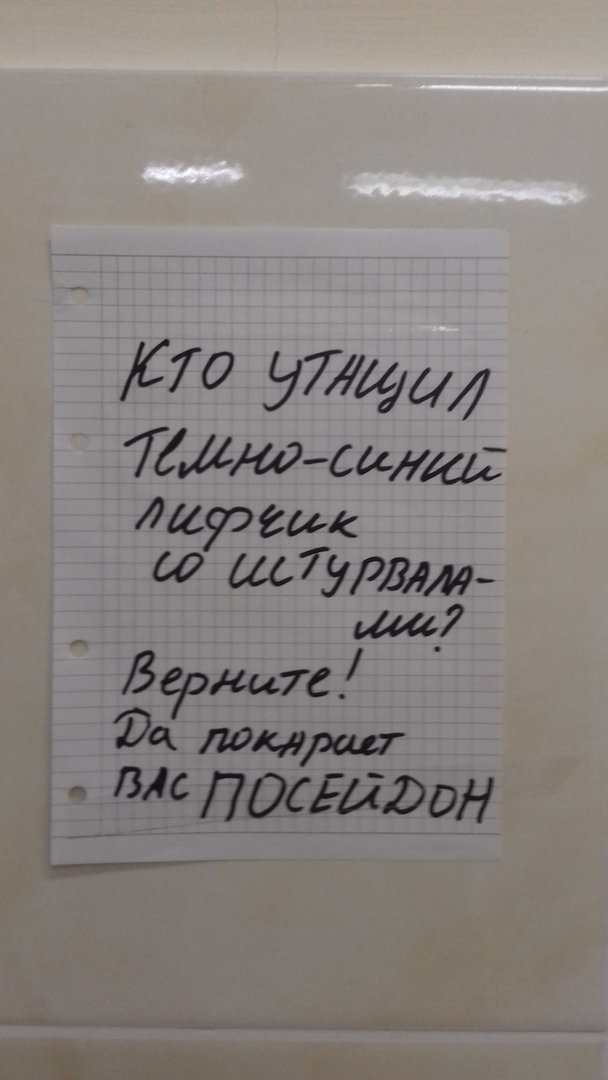 Кто утащил
темно-синий
лифчик
со штурвала-
ми?
Верните!
Да покарает
вас ПОСЕЙДОН